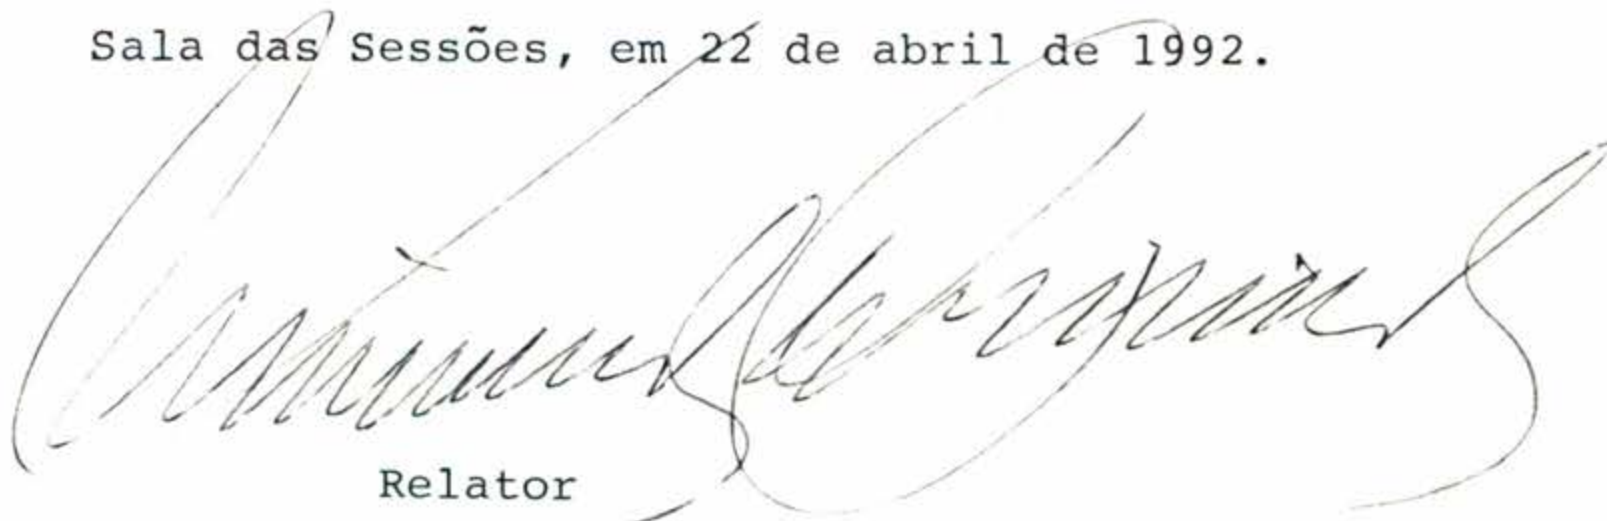 Sala das Sessões, em 22 de abril de 1992.
Relator